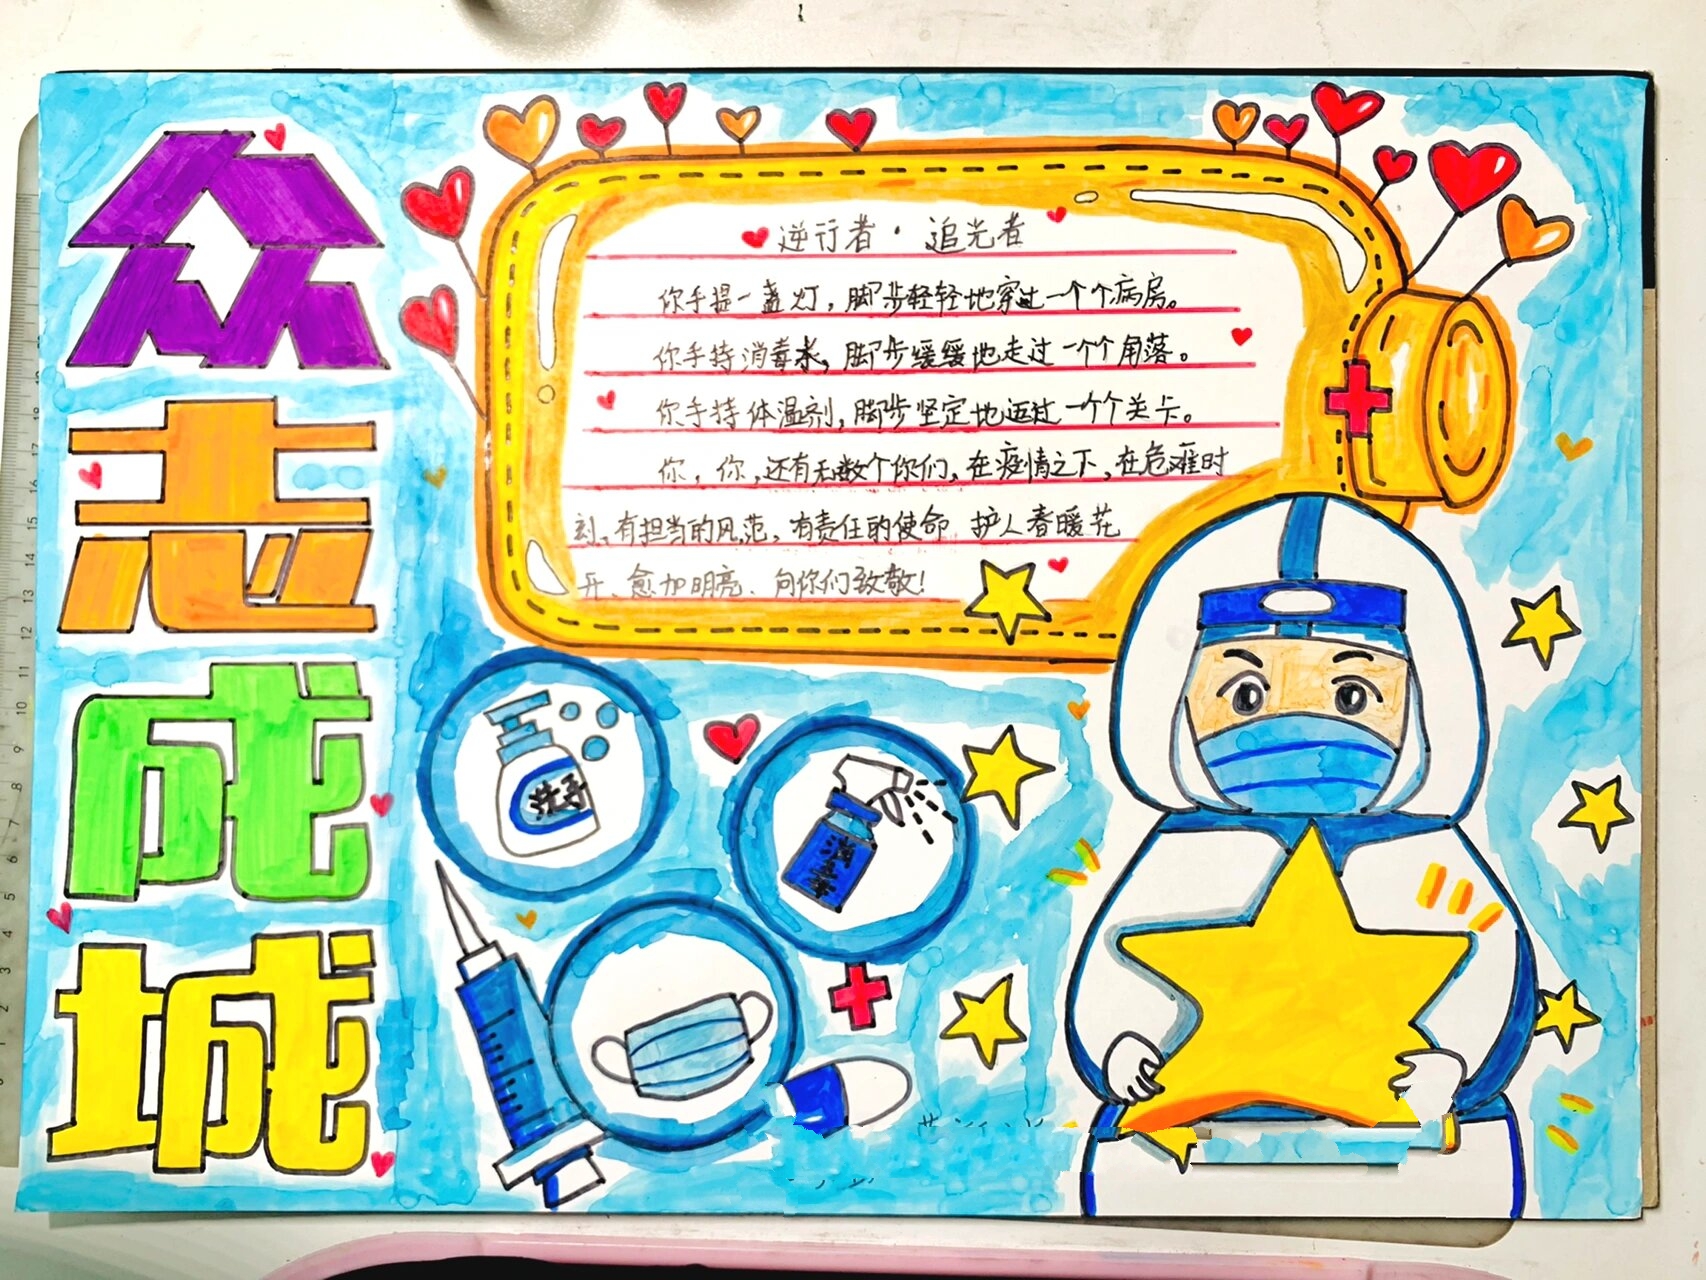 众
志
成
城
逆行者·追光者
你手提一盏灯,脚步轻轻地穿过一个个病房。
你手持消毒水,脚步缓缓地走过一个个角落。
你手持体温剂,脚步坚定地迈过一个个关卡。
你,你,还有无数个你们,在疫情之下,在危难时
刻、有担当的风范,有责任的使命 护人春暖花
开、愈加明亮、向你们致敬!
洗手
消毒